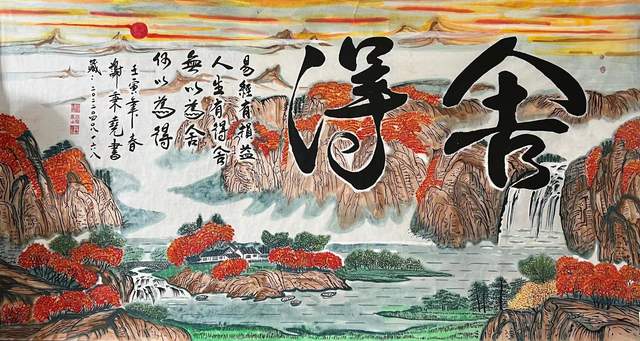 舍得
易經有損益
人生有得舍
無以為舍
何以為得
壬寅年春
謝秉堯書
二〇二二